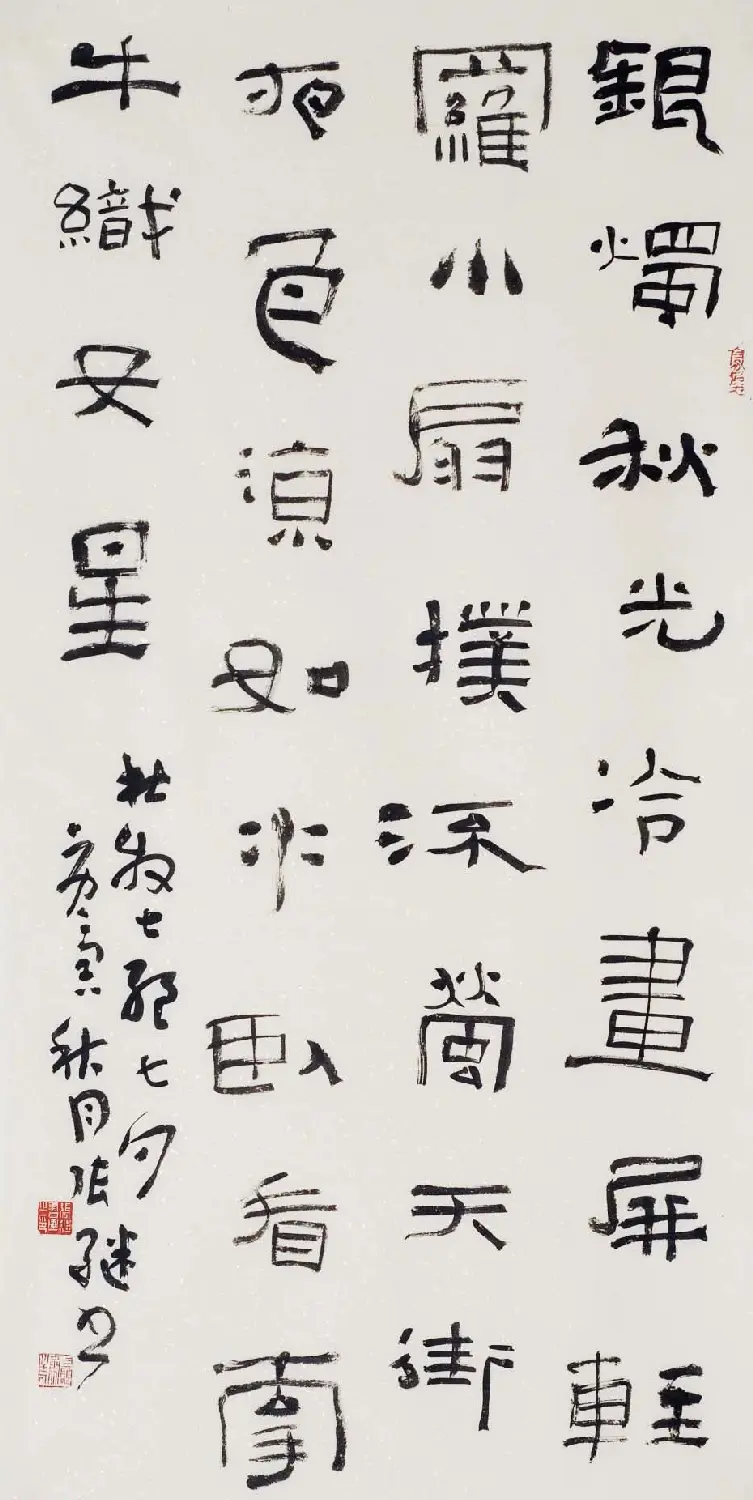 銀燭秋光冷畫屏輕
羅小扇撲流螢天街
夜色涼如水臥看牽
牛織女星
杜牧七絕七夕
秋月張繼書